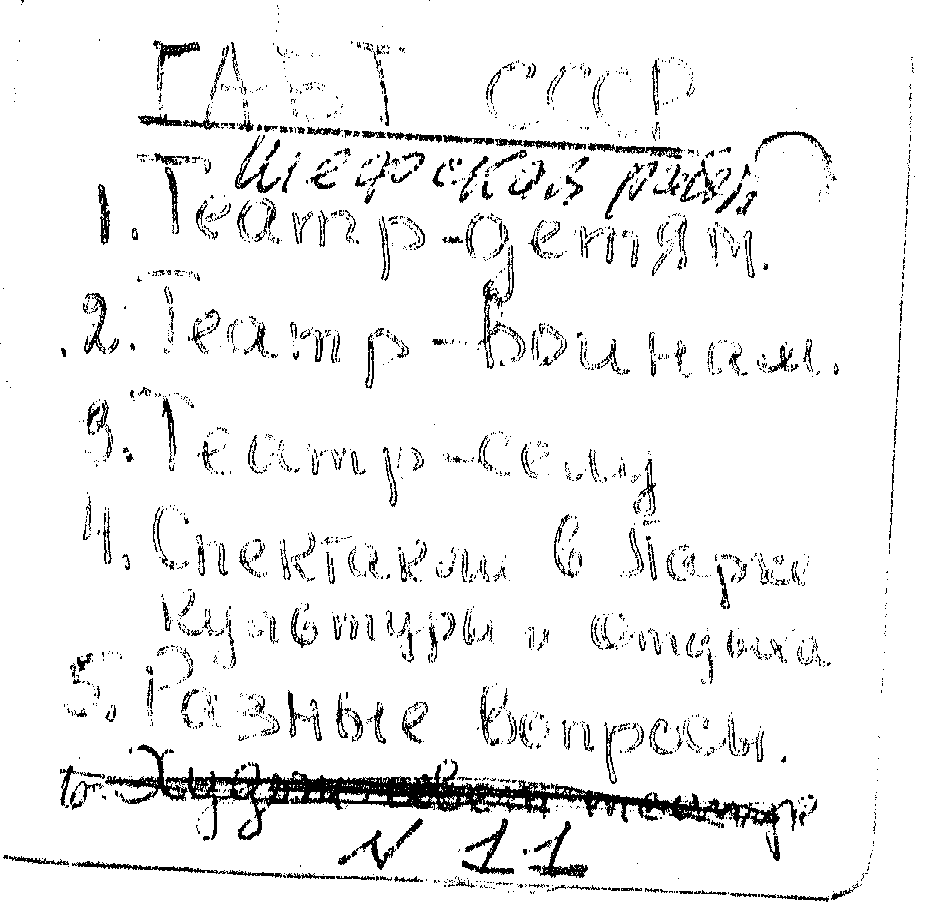 ГАБТ СССР
Шефская работа
1. Театр-детям.
2. Театр-воинам.
3. Театр-селу
4. Спектакли в Парке
культуры и отдыха
5. Разные вопросы.
6. театр
N 11